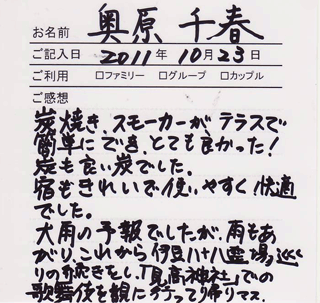 お名前 奥原 千春
ご記入日 2011 年 10 月 23 日
ご利用 □ファミリー □グループ □カップル
ご感想
炭焼き、スモーカーが、テラスで
簡単にでき、とても良かった!
炭も良い炭でした。
宿もきれいで使いやすく快適
でした。
大雨の予報でしたが、雨もあ
がり、これから伊豆八十八霊場巡
りの続きをし、「見高神社」での
歌舞伎を観に行って帰りマス